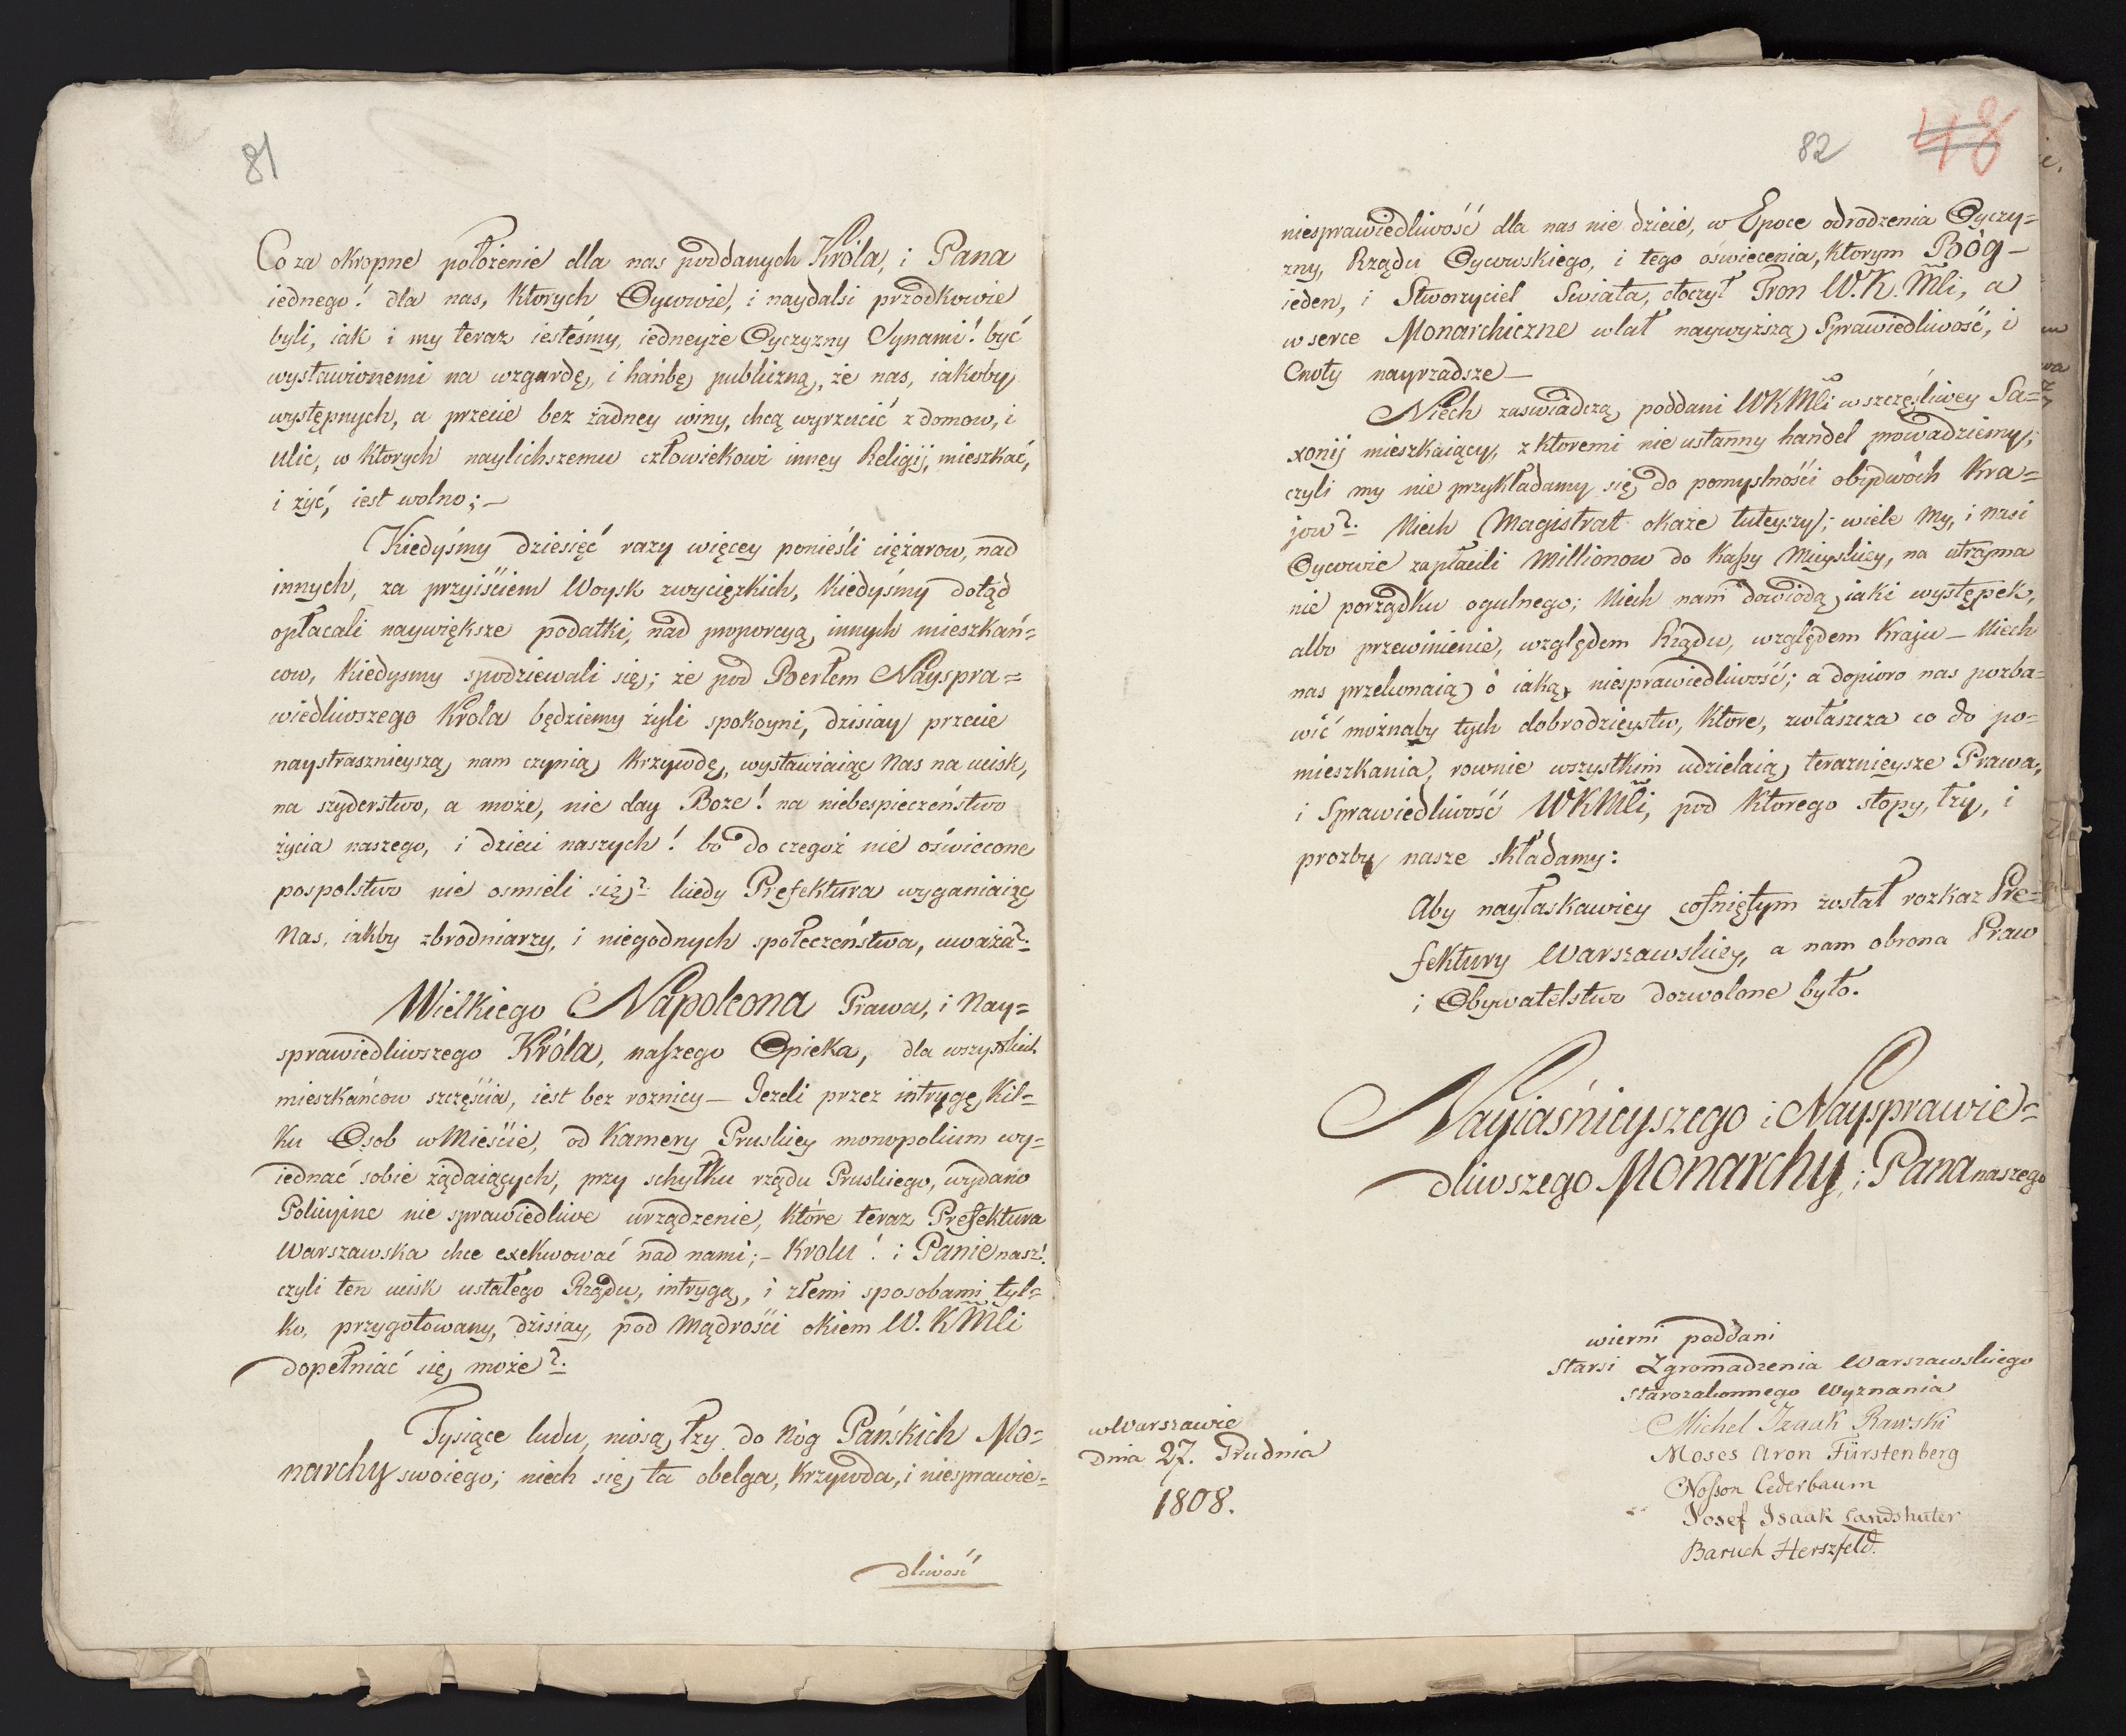 81
Co za okropne położenie dla nas poddanych Króla, i Pana
iednego! dla nas, których Oycowie, i naydalsi przodkowie
byli, iak i my teraz iesteśmy, iedneyże Oyczyzny Synami! być
wystawionemi na wzgardę, i hańbę publiczną, że nas, iakoby
występnych, a przecie bez żadney winy, chcą wyrzucić z domow, i
ulic, w których naylichszemu człowiekowi inney Religij, mieszkać,
i żyć, iest wolno; –
Kiedyśmy dziesięć razy więcey ponieśli ciężarow, nad
innych, za przyiściem Woysk zwycięzkich, kiedyśmy dotąd
opłacali naywiększe podatki, nad proporcyą, innych mieszkań=
cow, kiedysmy spodziewali się; że pod Berłem Nayspra=
wiedliwszego Krola będziemy żyli spokoyni, dzisiay przecie
naystrasznieyszą nam czynią Krzywdę, wystawiaiąc Nas na ucisk,
na szyderstwo, a może, nie day Boże! na niebespieczeństwo
życia naszego, i dzieci naszych! bo do czegoż nie oświecone
pospolstwo nie osmieli się? kiedy Prefektura wyganiaiąc
Nas, iakby zbrodniarzy, i niegodnych społeczeństwa, uważa?
Wielkiego Napoleona Prawa, i Nay=
sprawiedliwszego Króla, naszego Opieka, dla wszystkich
mieszkańcow szczęścia, iest bez roznicy – Jezeli przez intrygę Kil=
ku Osob w Mieście, od Kamery Pruskiey monopolium wy=
iednać sobie żądaiących, przy schyłku rządu Pruskiego, wydano
Policyine nie sprawiedliwe urządzenie, które teraz Prefektura
Warszawska chce exekwować nad nami; – Krolu! i Panie nasz!
czyli ten ucisk ustałego Rządu, intrygą, i złemi sposobami tyl=
ko, przygotowany, dzisiay, pod Mądrości okiem W. KMłi
dopełniać się może?
Tysiące ludu, niosą łzy do Nóg Pańskich Mo=
narchy swoiego; niech się ta obelga, Krzywda, i niesprawie=
dliwość
82 48
niesprawiedliwość dla nas nie dzieie, w Epoce odrodzenia Oyczy=
zny, Rządu Oycowskiego, i tego oświecenia, ktorym Bóg –
ieden, i Stworzyciel Swiata, otoczył Tron W. K. Młi, a
w serce Monarchiczne wlał naywyższą Sprawiedliwość, i
Cnoty nayrzadsze –
Niech zaswiadczą poddani WKMłi w szczęśliwey Sa=
xonij mieszkaiący, z ktoremi nieustanny handel prowadziemy;
czyli my nie przykładamy się do pomyslności obydwóch Kra=
jow? Niech Magistrat okaże tuteyszy; wiele My, i nasi
Oycowie zapłacili Millionow do Kassy Mieyskiey, na utrzyma
nie porządku ogulnego; Niech nam dowiodą iaki występek,
albo przewinienie, względem Rządu, względem Kraju – Niech
nas przekonaią o iaką niesprawiedliwość; a dopioro nas pozba=
wić możnaby tych dobrodzieystw, które, zwłaszcza co do po=
mieszkania, rownie wszystkim udzielaią teraznieysze Prawa,
i Sprawiedliwość WKMłi, pod ktorego stopy, łzy, i
prozby nasze składamy:
Aby nayłaskawiey cofniętym został rozkaz Pre=
fektury Warszawskiey, a nam obrona Praw
i Obywatelstwo dozwolone było.
Nayiaśnieyszego i Naysprawie=
dliwszego Monarchy, i Pana naszego
wierni poddani
Starsi Zgromadzenia Warszawskiego
Starozakonnego Wyznania
Michel Izaak Rawski
Moses Aron Fürstenberg
Nosson Cederbaum
Josef Isaak Landshuter
Baruch Herszfeld.
w Warszawie
Dnia 27. Grudnia
1808.